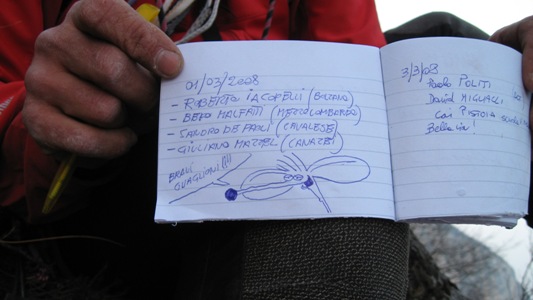 01/03/2008
- ROBERTO IACOPELLI (BOLZANO)
- BEPO MALFATTI (MEZZOLOMBARDO)
- SANDRO DE PAOLI (CAVALESE)
- GIULIANO MAZZEL (CANAZEI)
BRAVI
GUAGLIONI!!!!
3/3/08
Paolo POLITI
David MIGLALI
CAI PISTOIA
Bella via!